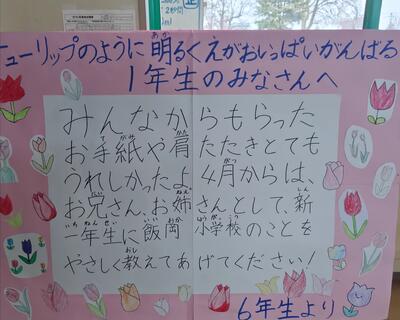 チューリップのように明るくえがおいっぱいがんばる
1年生のみなさんへ
みんなからもらった
お手紙や肩たたきとても
うれしかったよ。4月からは、
お兄さん、お姉さんとして、新
一年生に飯岡小学校のことを
やさしく教えてあげてください!
6年生より